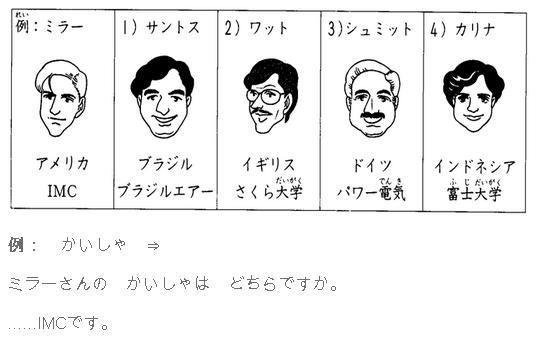 例：ミラー
アメリカ
IMC
1) サントス
ブラジル
ブラジルエアー
2) ワット
イギリス
さくら大学
3) シュミット
ドイツ
パワー電気
4) カリナ
インドネシア
富士大学
例：　かいしゃ　⇒
ミラーさんの　かいしゃは　どちらですか。
……IMCです。